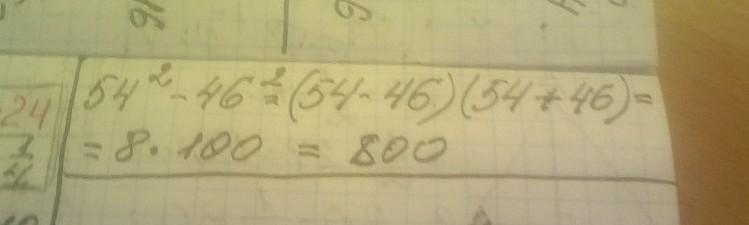 24
54² - 46² = (54 - 46)(54 + 46) =
= 8 · 100 = 800